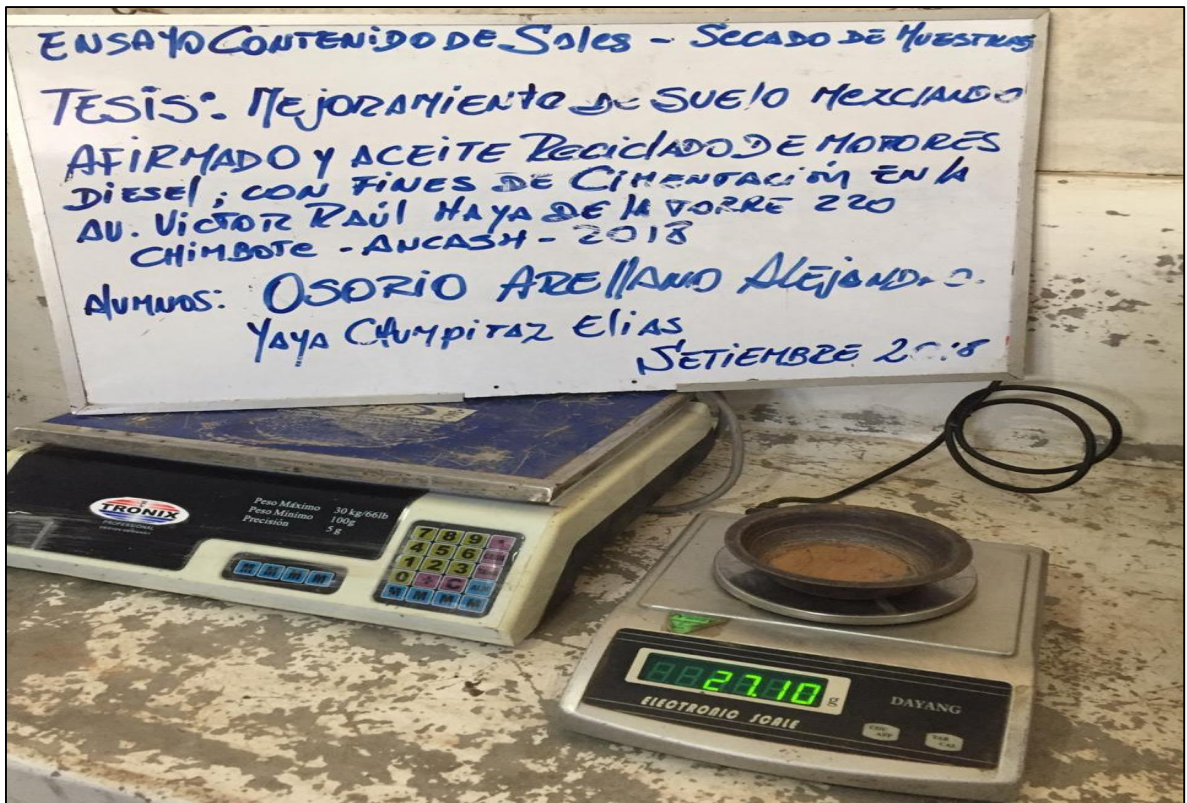 ENSAYO CONTENIDO DE Sales - SECADO DE MUESTRAS
TESIS: MEJORAMIENTO DE SUELO MEZCLANDO
AFIRMADO Y ACEITE RECICLADO DE MOTORES
DIESEL, CON FINES DE CIMENTACIÓN EN LA
AV. VICTOR RAÚL HAYA DE LA TORRE 220
CHIMBOTE - ANCASH - 2018
ALUMNOS: OSORIO ARELLANO
YAYA CHUMPITAZ ELIAS
SETIEMBRE
TRONIX
PROFESSIONAL
Peso Máximo 30 kg/66lb
Peso Mínimo 100g
Precisión 5 g
7 8 9
4 5 6
1 2 3
0 C
M M M M
27.10 g
ELECTRONIC SCALE
DAYANG